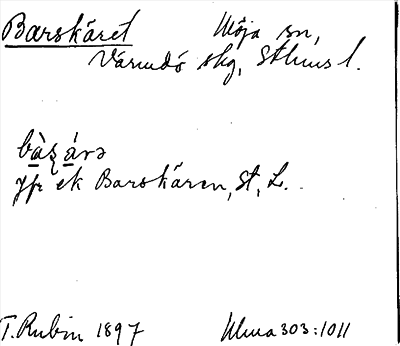 Barskäret Möja sn,
Värmdö skg, Sthlms l.
bàʂárə
jfr ek Barskären, St. L.
T. Rubin 1897 Ulma 303:1011